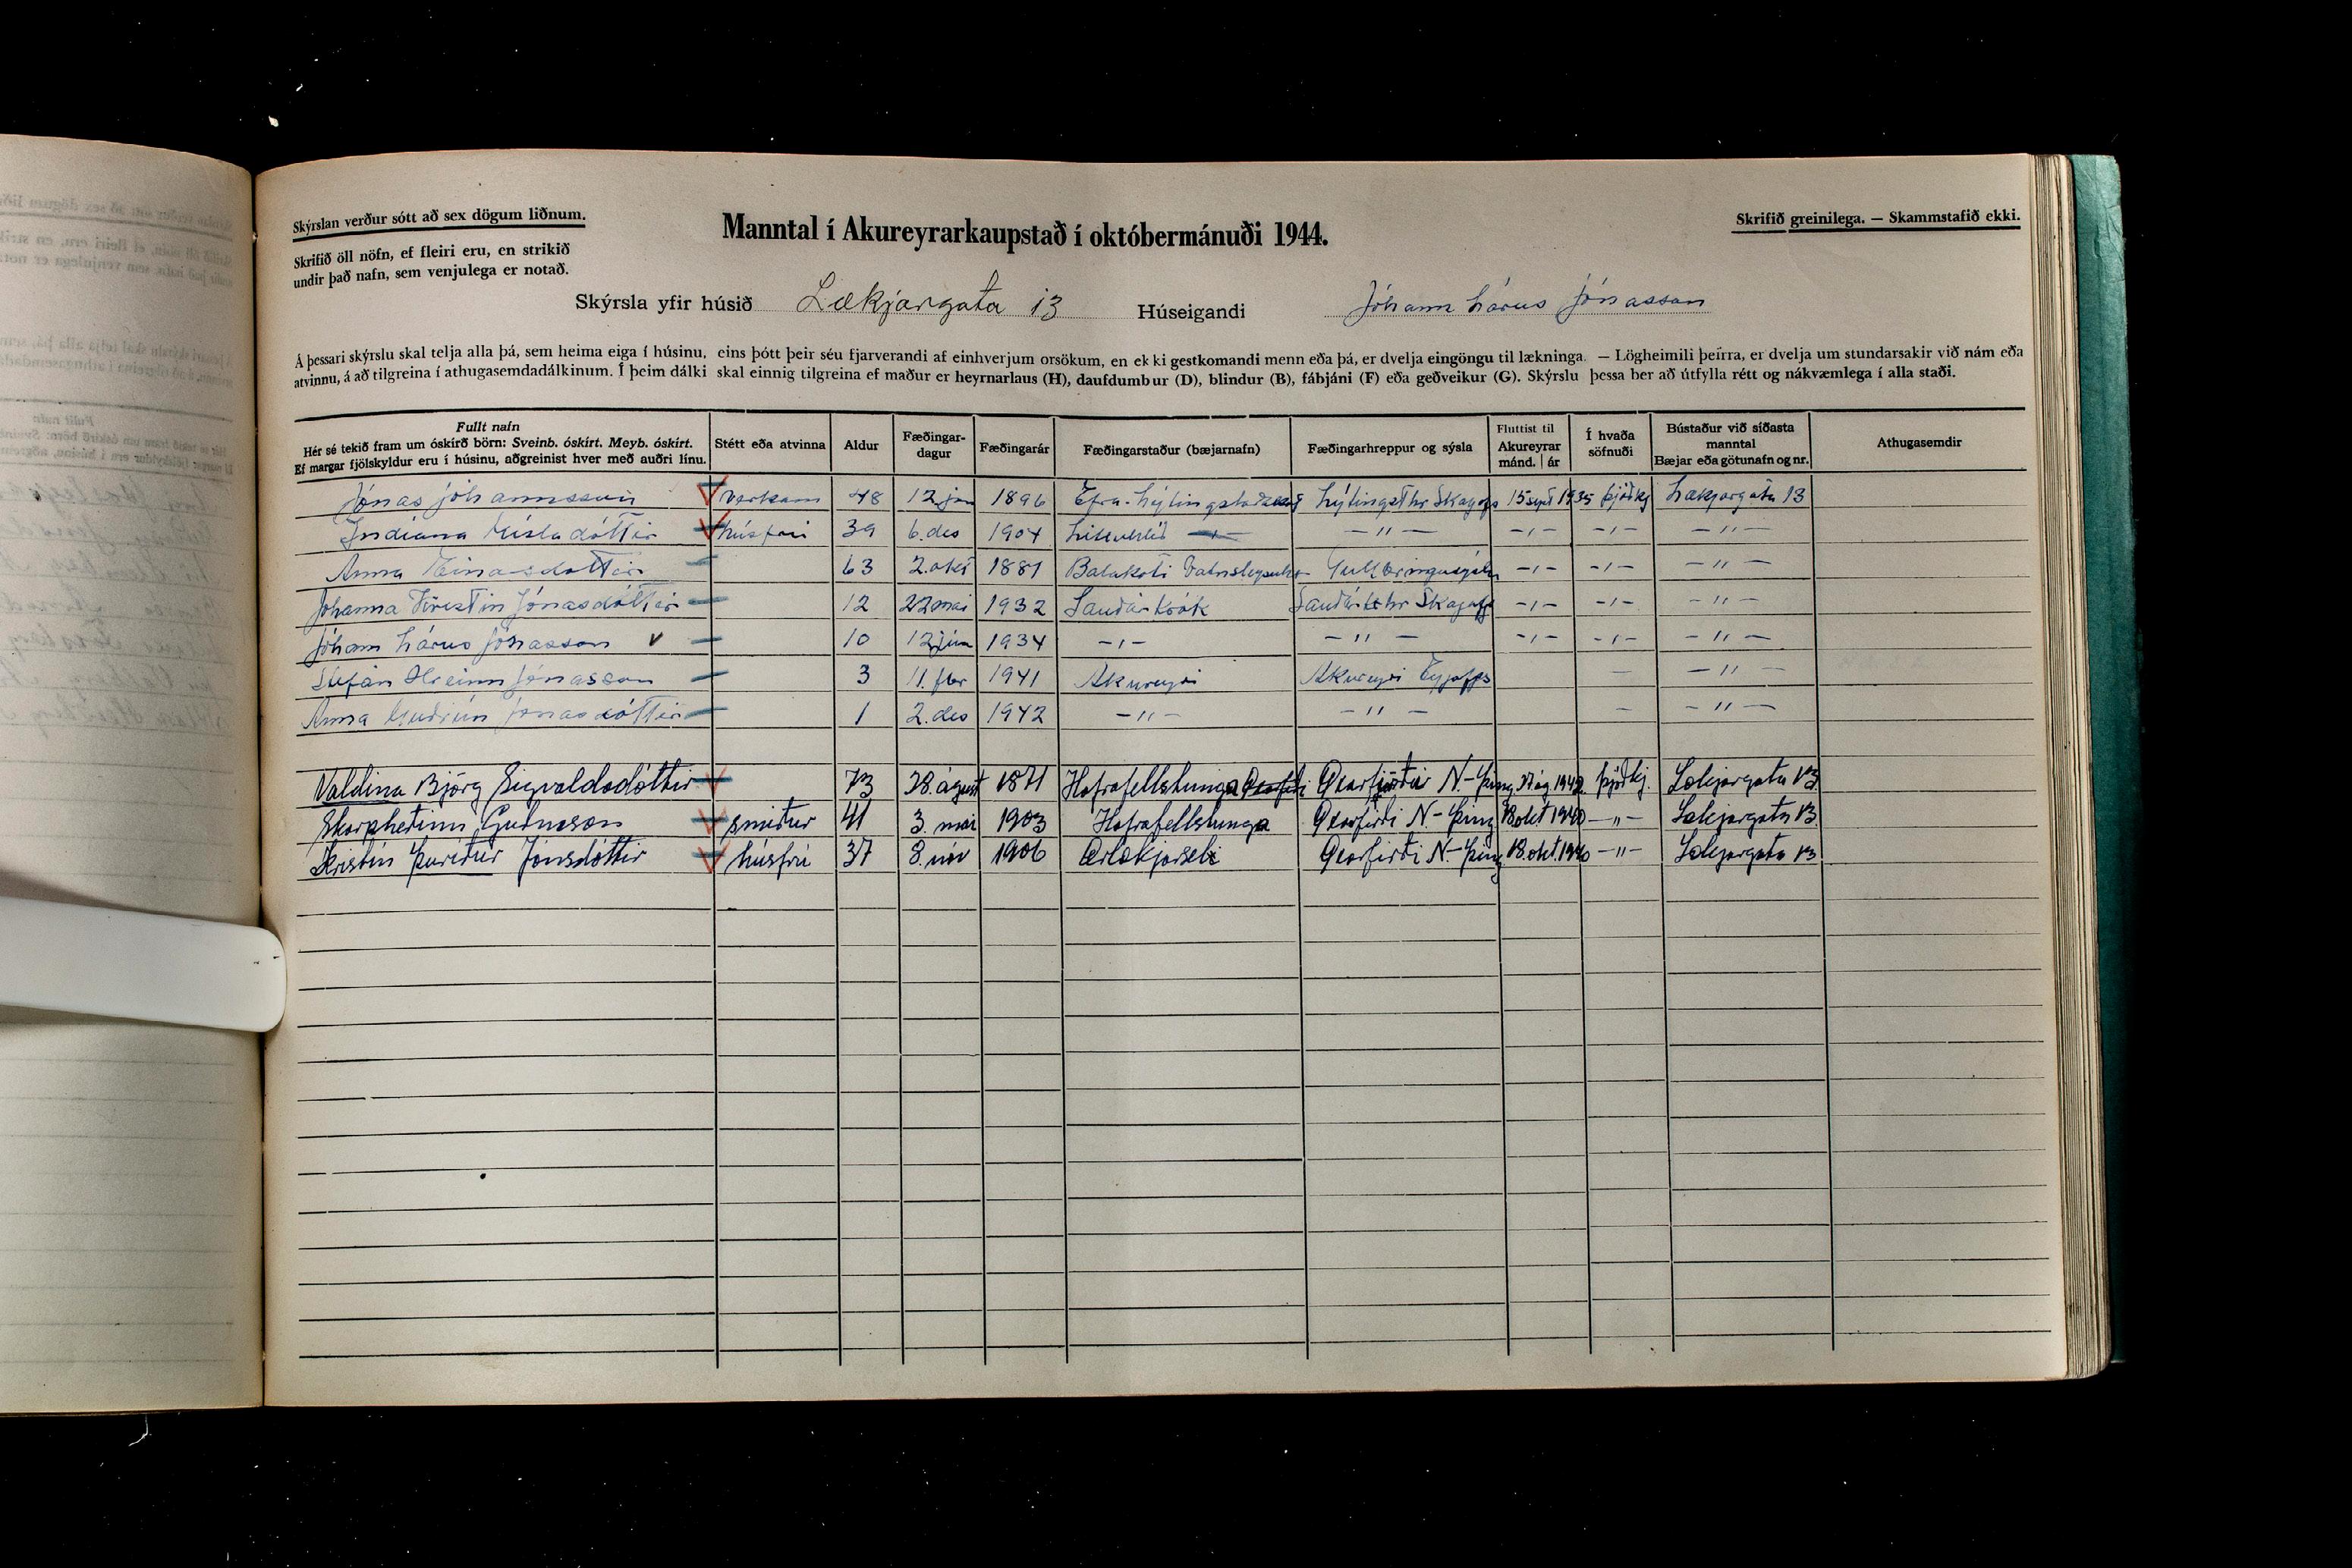 Skýrslan verður sótt að sex dögum liðnum.
Skrifið öll nöfn, ef fleiri eru, en strikið
undir það nafn, sem venjulega er notað.
Manntal í Akureyrarkaupstað í októbermánuði 1944.
Skrifið greinilega. — Skammstafið ekki.
Skýrsla yfir húsið Lækjargata 13 Húseigandi Jóhann Lárus Jónasson
Á þessari skýrslu skal telja alla þá, sem heima eiga í húsinu, eins þótt þeir séu fjarverandi af einhverjum orsökum, en ekki gestkomandi menn eða þá, er dvelja eingöngu til lækninga. — Lögheimili þeirra, er dvelja um stundarsakir við nám eða
atvinnu, á að tilgreina í athugasemdadálkinum. Í þeim dálki skal einnig tilgreina ef maður er heyrnarlaus (H), daufdumbur (D), blindur (B), fábjáni (F) eða geðveikur (G). Skýrslu þessa ber að útfylla rétt og nákvæmlega í alla staði.
Fullt nafn
Hér sé tekið fram um óskírð börn: Sveinb. óskírt. Meyb. óskírt.
Ef margar fjölskyldur eru í húsinu, aðgreinist hver með auðri línu.
Stétt eða atvinna
Aldur
Fæðingar-
dagur
Fæðingarár
Fæðingarstaður (bæjarnafn)
Fæðingarhreppur og sýsla
Fluttist til
Akureyrar
mánd. | ár
Í hvaða
söfnuði
Bústaður við síðasta
manntal
Bæjar eða götunafn og nr.
Athugasemdir
Jónas Jóhannsson verkam 48 12 jan 1896 Efra-Lýtingstaðakoti Lýtingsthr Skagafs 15 sept 1935 þjóðkj Lækjargata 13
Indíana Gísladóttir húsfrú 39 6. des 1904 — " — — ı — — ı — — " —
Anna Einarsdóttir 63 2. okt 1881 Balakoti Gullbringusýslu — ı — — ı — — " —
Jóhanna Kristín Jónasdóttir 12 22 mai 1932 Sauðárkrók Sauðárkhr Skagafs — ı — — ı — — " —
Jóhann Lárus Jónasson v 10 12 jún 1934 — ı — — " — — ı — — ı — — " —
Stefán Hreinn Jónasson 3 11. fbr 1941 Akureyri Akureyri Eyjafjs — — " —
Anna Guðrún Jónasdóttir 1 2. des 1942 — " — — " — — — " —
Valdína Björg Sigvaldadóttir 73 28. ágúst 1871 Hafrafellstunga Öxarfjörður N-Þing 1942 þjóðkj. Lækjargata 13
Skarphéðinn Guðnason smiður 41 3. mai 1903 Hafrafellstunga Öxarfirði N-Þing 18 okt 1940 — " — Lækjargata 13
Kristín Þuríður Jónsdóttir húsfrú 37 8. nóv 1906 Ærlækjarseli Öxarfirði N-Þing 18. okt 1940 — " — Lækjargata 13